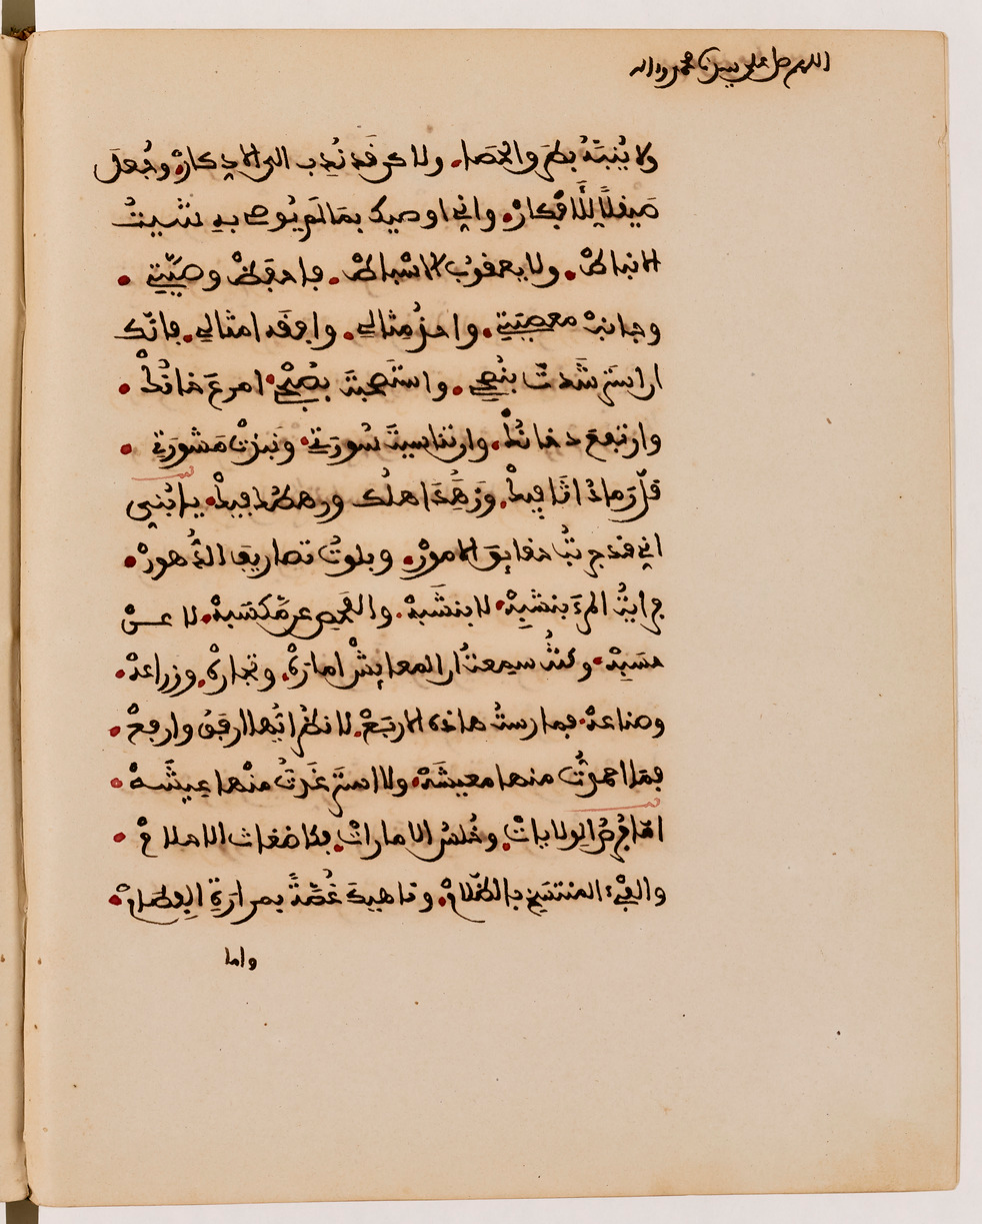 اللهم صل على سيدنا محمد وءاله
ولا يُنبَّهُ بطرق الحصا. ولاكن قد نُدِب الى الاذكار. وجُعِلَ
صيقلًا لِلأَفكار. واني اوصيك بما لم يُوص به شيثُ
الانباط. ولا يعقوبُ الاسْباط. فاحفظ وصيّتي.
وجانبْ معصيتي. واحذُ مِثالي. وافقه امثالي. فانّك
ان استرشدتَ بنُصحي. واستصبحتَ بصُبحي. امرعَ خانُك.
وارتفعَ دخانُك. وان تناسيتَ سُورتي. ونبذتَ مشورتي.
قلّ رَماد اثافيك. وزهدَ اهلُك ورهطُك فيك. يا بُنيى
اني قد جربتُ حقايق الامور. وبلوتُ تصاريف الدُّهور.
فرايتُ المرءَ بنشبِه. لا بنسَبِه. والفحص عن مَّكسَبِه. لا عن
حسَبِه. وكنتُ سمعتُ ان المعايشَ امارة. وتجارة. وزراعة.
وصناعة. فمارستُ هاذه الاربع. لانظر ايُّها اوفقُ وانفع.
فما احمدتُ منها معيشة. ولا استرغدتُ منها عيشة.
امّا فُرصُ الولايات. وخُلسُ الامارات. فكاضغاث الاحلام.
والفيْءِ المنتسخ بالظلام. وناهيكَ غُصّةً بمرارَةِ الفِطام.
واما